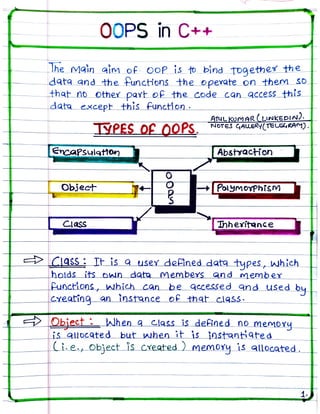 OOPS in C++
The main aim of OOP is to bind together the
data and the functions the operate on them so
that no other part of the code can access this
data except this function.
ATUL KUMAR (LINKEDIN).
NOTES GALLERY (TELEGRAM).
TYPES OF OOPS.
Encapsulation
Abstraction
OOPS
Object
Polymorphism
Class
Inheritance
⇒ Class : It is a user defined data types, which
holds its own data members and member
functions, which can be accessed and used by
creating an instance of that class.
⇒ Object : When a class is defined no memory
is allocated but when it is instantiated
(i.e., object is created) memory is allocated.
1.